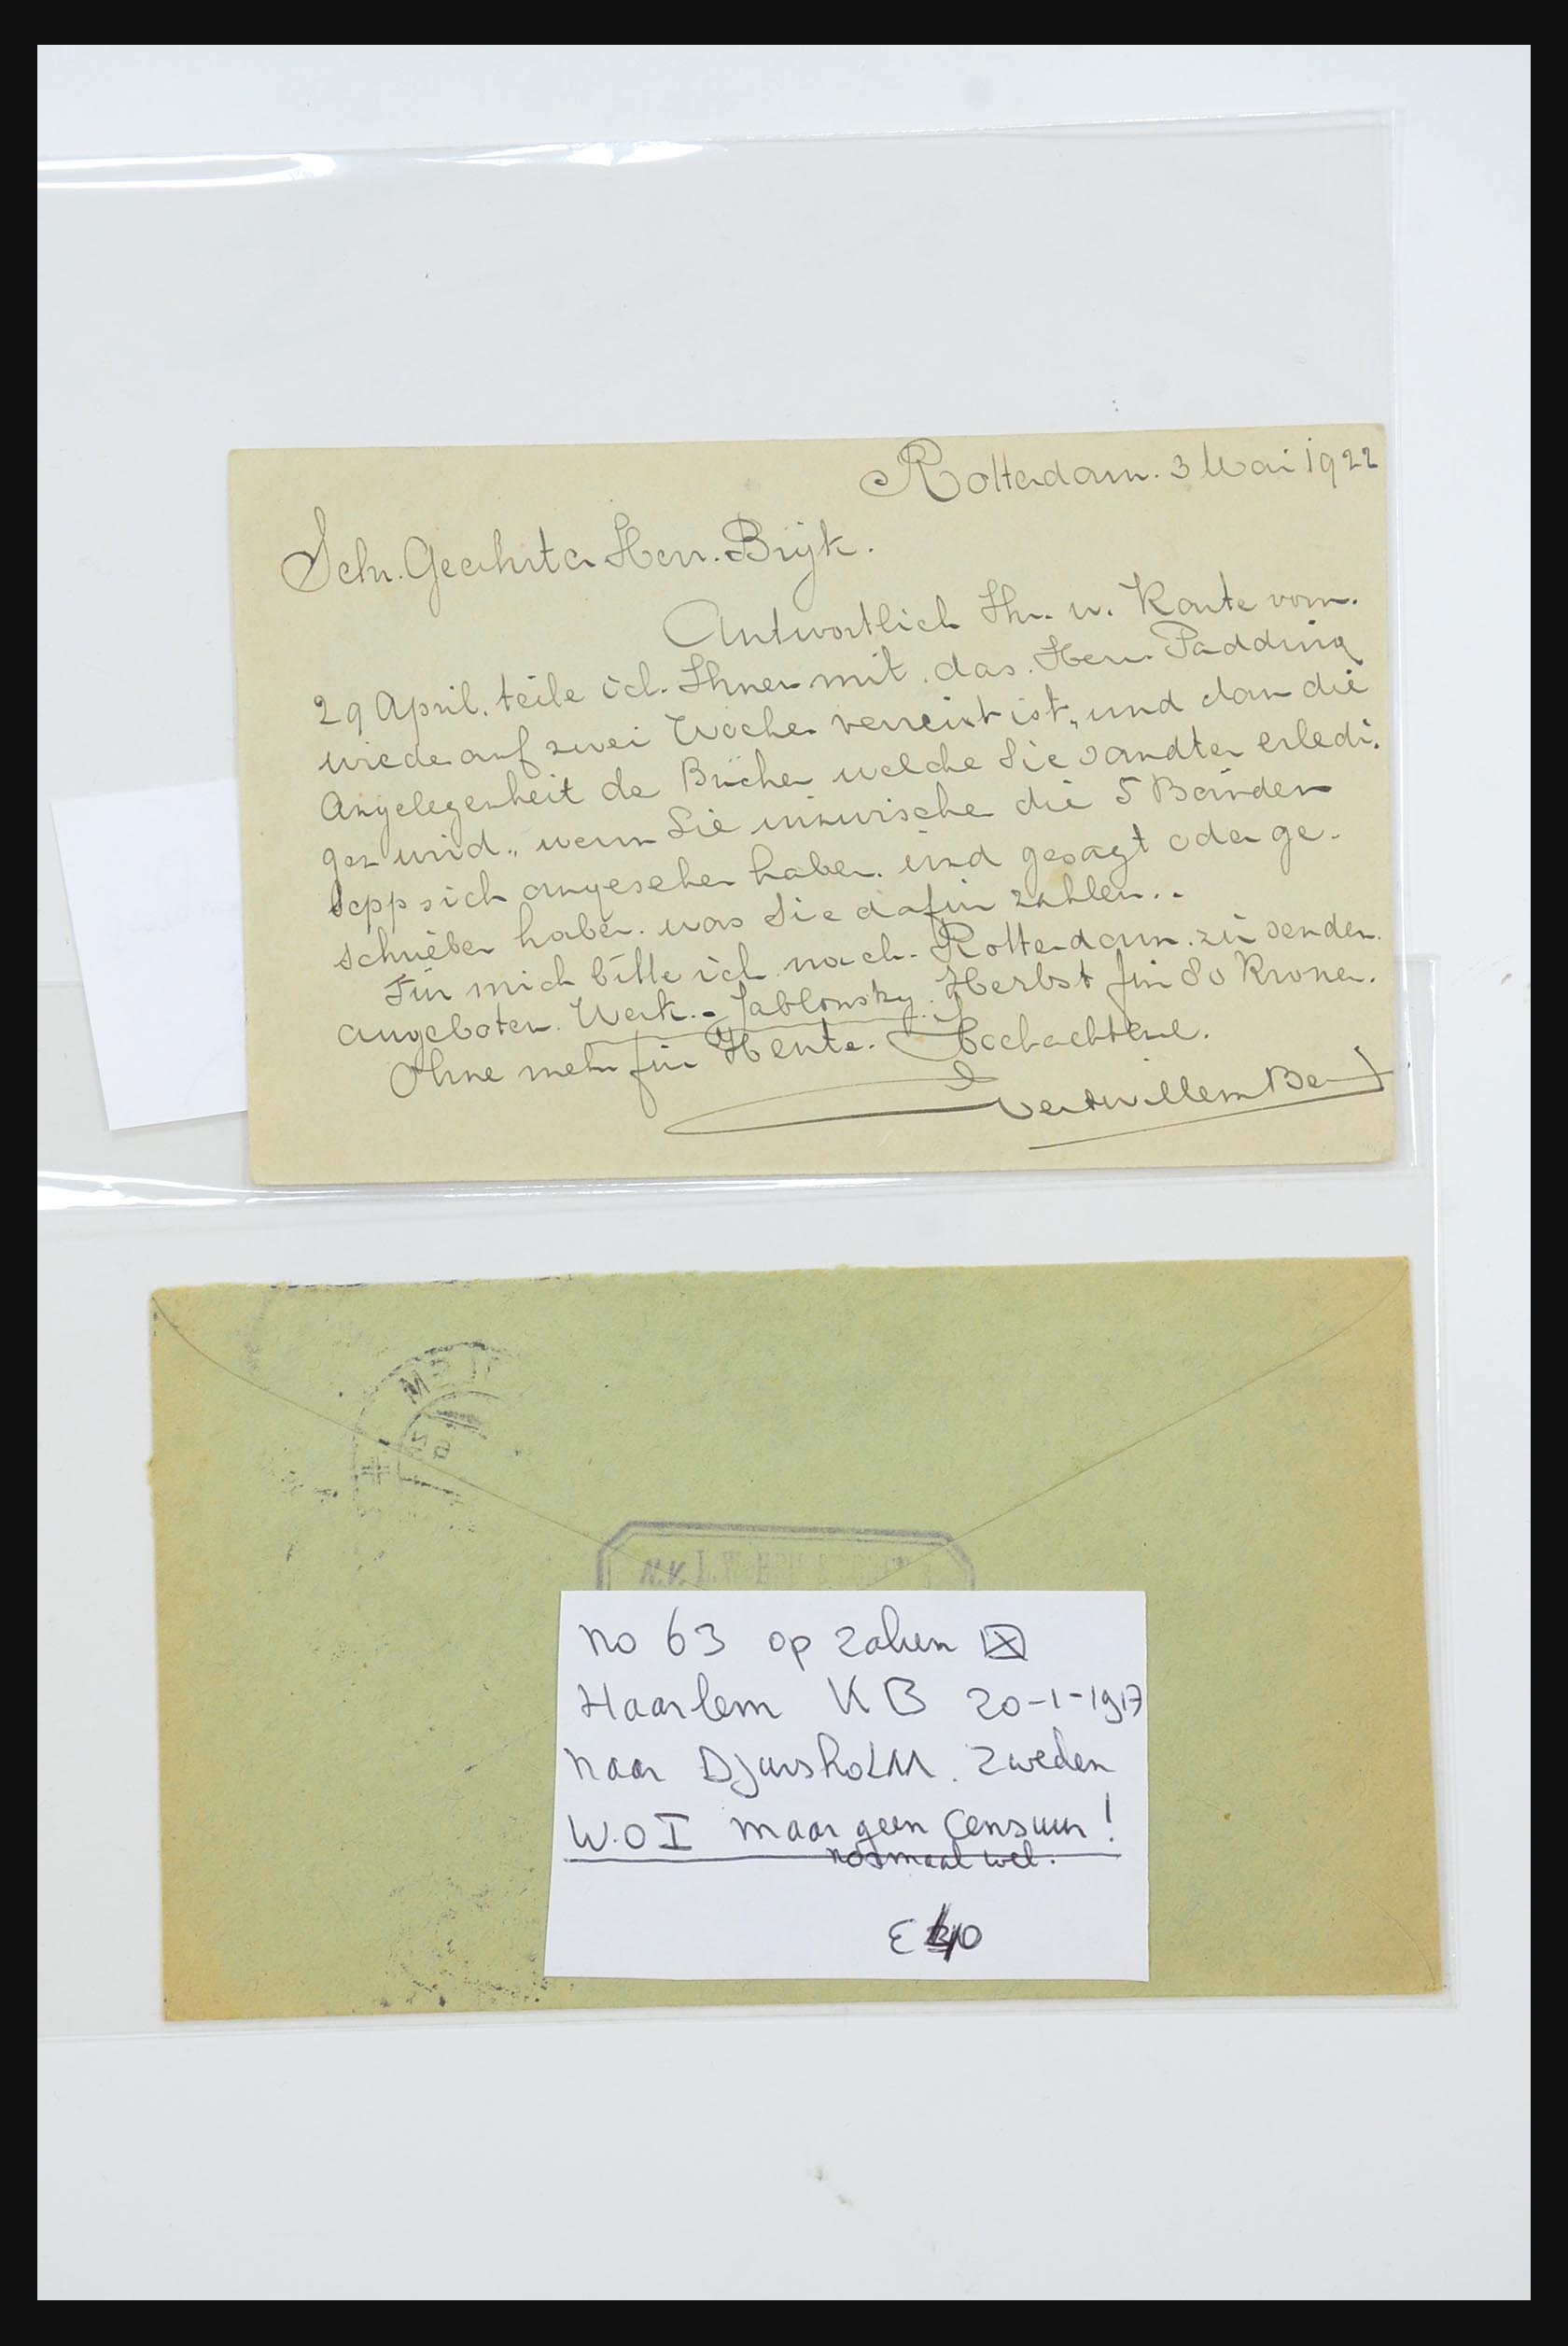 Rotterdam. 3 Mai 1922
Sehr. Geehrter Herr. Brijk.
Antwortlich Ihr. w. Karte vom.
29 April. teile ich. Ihnen mit. das. Herr. Padding
wieder auf zwei Woche verreist ist, und dan die
Angelegenheit de Bücher welche Sie sandten erledi.
gen wird., wenn Sie inzwische die 5 Bänden
Sepp sich angesehen haben. und gesagt oder ge-
schrieben haben. was Sie dafür zahlen..
Für mich bitte ich nach. Rotterdam. zu senden.
angeboten. Werk. - Jablonsky. Herbst für 80 Kronen.
Ohne mehr für Heute. Hochachtend.
N.V.
no 63 op zaken
Haarlem KB 20-1-1917
naar Djursholm. Zweden
W.O I maar geen Censuur!
normaal wel.